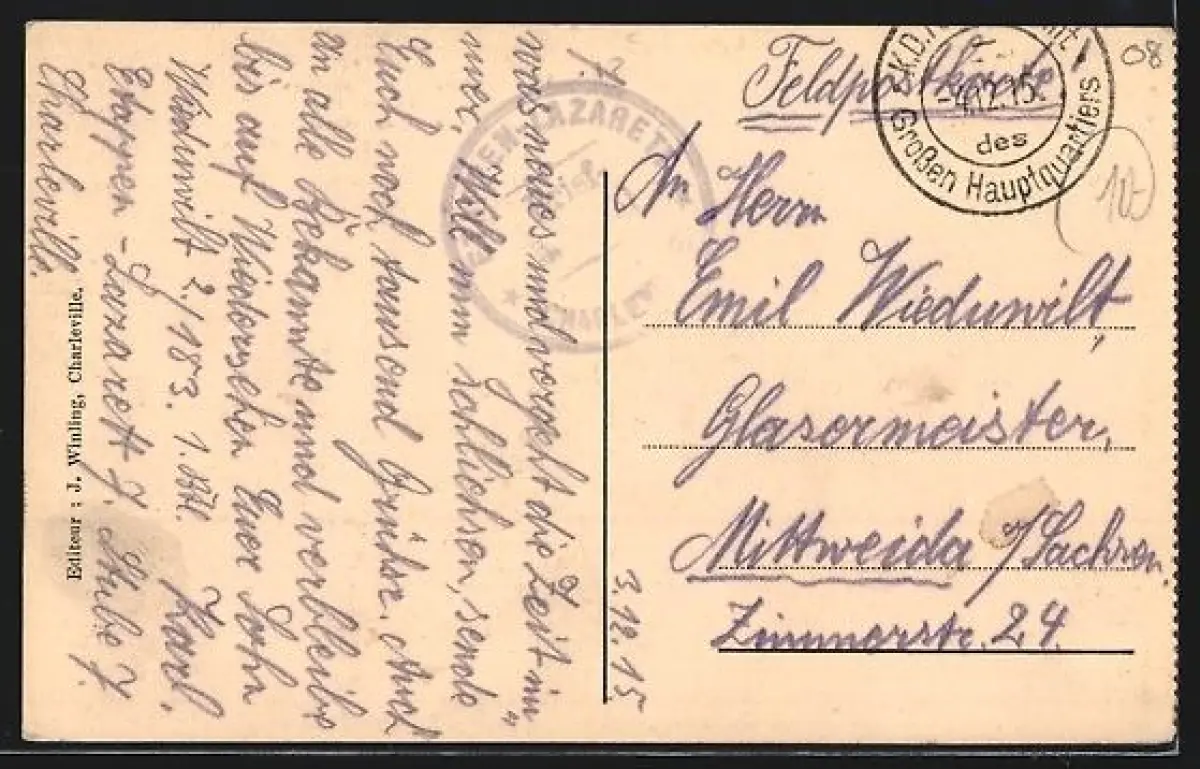 Feldpostkarte
K.D.
4.12.15.
des
Großen Hauptquartiers
08
An Herrn
Emil Wieduwilt,
Glasermeister,
Mittweida i/Sachsen.
Zimmerstr. 24.
3.12.15.
LAZARETT
was neues und vergeht die Zeit im-
mer. Will nun schließen, sende
Euch noch tausend Grüße. Auch
an alle Bekannte und verbleibe
bis auf Wiedersehen Euer Sohn
Karl.
Wieduwilt 2./183. 1.
Etappen-Lazarett J. Stube 7
Charleville.
Editeur : J. Winling, Charleville.